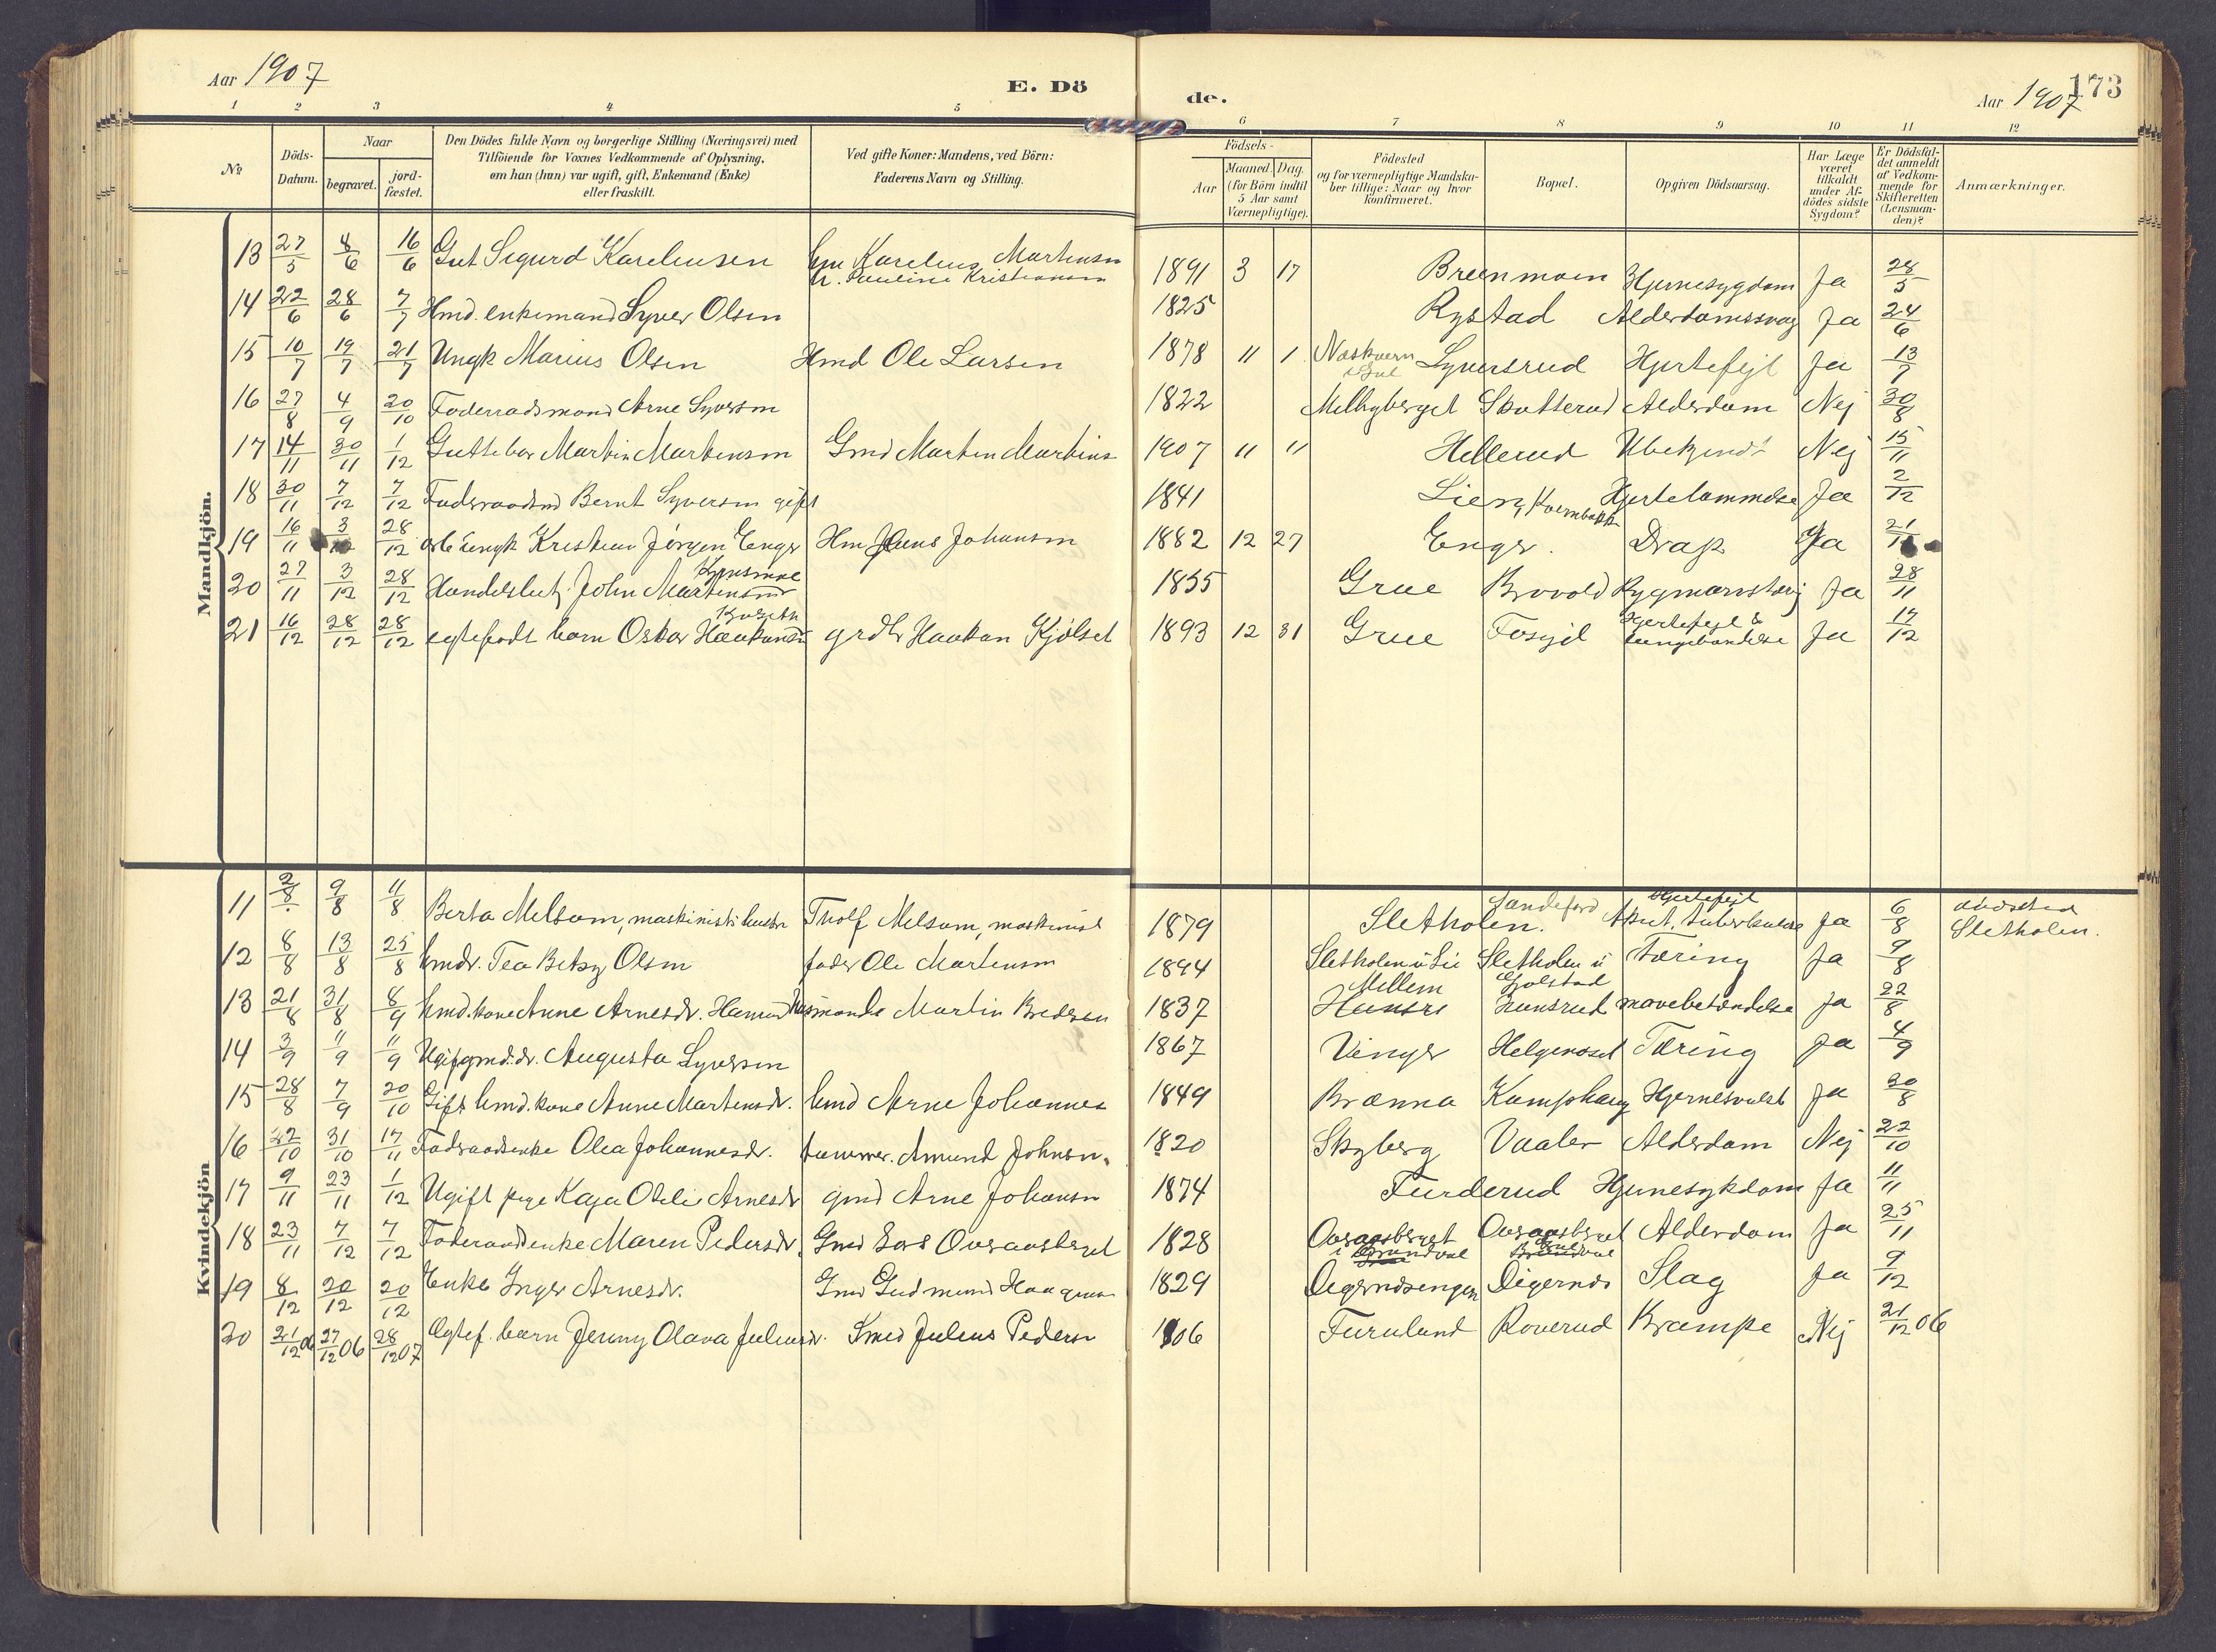 Aar 1907
E. Dö
de.
Aar 1907
173
1 2 3 4 5 6 7 8 9 10 11 12
№
Döds-Datum.
Naar
begravet.
jord-fæstet.
Den Dödes fulde Navn og borgerlige Stilling (Næringsvei) med
Tilföiende for Voxnes Vedkommende af Oplysning,
om han (hun) var ugift, gift, Enkemand (Enke)
eller fraskilt.
Ved gifte Koner: Mandens, ved Börn:
Faderens Navn og Stilling.
Födsels-
Aar
Maaned. Dag.
(for Börn indtil
5 Aar samt
Værnepligtige).
Födested
og for værnepligtige Mandska-
ber tillige: Naar og hvor
konfirmeret.
Bopæl.
Opgiven Dödsaarsag.
Har Læge
været
tilkaldt
under Af-
dödes sidste
Sygdom?
Er Dödsfal-
det anmeldt
af Vedkom-
mende for
Skifteretten
(Lensman-
den)?
Anmærkninger.
Mandkjön.
13 27/5 4/6 16/6 Gut Sigurd Kareliusen Karelius Martinsen Pauline Kristiansen 1891 3 17 Breenmoen Hjernesygdom Ja 28/5
14 22/6 28/6 7/7 Hmd. enkemand Syver Olsen 1825 Rystad Alderdomssvag Ja 24/6
15 10/7 19/7 21/7 Ungk Marius Olsen Hmd Ole Larsen 1878 11 1 Syversrud Hjertefejl Ja 13/7
16 27/8 4/9 20/10 Foderraadsmand Arne Syversen 1822 Skutterud Alderdom Nej 30/8
17 14/11 30/11 1/12 Guttebar Martin Martinsen Gmd Martin Martins 1907 11 11 Hellerud Ubekjendt Nej 15/11
18 30/11 7/12 7/12 Bernt Syversen gift 1841 Lien, Kvernbakk Hjertelammelse Ja 2/12
19 16/11 3/12 28/12 ungk Kristian Jörgen Enger Hm Hans Johansen 1882 12 27 Enger. Drap Ja 21/11
20 27/11 3/12 28/12 John Martinsen 1855 Grue Brovold Ja 28/11
21 16/12 28/12 28/12 egtefödt barn Oskar Haakonsen grdbr Haakon Kjölset 1893 12 31 Grue Fosejd Hjertefejl & lungebændelse Ja 17/12
Kvindekjön
11 2/8 9/8 11/8 Berta Melsom, maskinists hustru Tholf Melsom, maskinist 1879 Sletholen. Sandefjord Hjertefejl Akut. tuberkulose Ja 6/8 dödssted Sletholen.
12 8/8 13/8 25/8 hmdr. Tea Betsy Olsen fader Ole Martinsen 1894 Sletholen i Lie Sletholen i Tæring Ja 9/8
13 21/8 31/8 8/9 hmd. kone Anne Arnesdr. husmands Martin Bredesen 1837 Mellem Gjolstad Hunsrud mavebetændelse Ja 22/8
14 3/9 11/9 11/9 Ugift gmd. dr. Augusta Syversen 1867 Vinger Helgenoset Tæring Ja 4/9
15 28/8 7/9 20/10 Gift hmd. kone Anne Martinsdr. hmd Arne Johannes 1849 Brænna Kamphaug Hjernesvulst Ja 30/8
16 22/10 31/10 17/11 Foderaadsenke Olea Johannesdr. tømmer. Amund Johnsen. 1820 Skyberg Vaaler Alderdom Nej 22/10
17 9/11 23/11 1/12 Ugift pige Kaja Otilie Arnesdr gmd Arne Johansen 1874 Furderud Hjernesykdom Ja 11/11
18 23/11 7/12 7/12 Foderaadsenke Maren Pedersdr. Gmd Lars Overaasberget 1828 Overaasberget i Overaasberget Alderdom Ja 25/11
19 8/12 20/12 20/12 Enke Inger Arnesdr. Gmd Gudmund Haagens 1829 Digernæsengen Digernæs Slag Ja 9/12
20 21/12 06 27/12 06 28/12 07 Egtef. barn Jenny Olava Juliusdr. Smed Julius Pedersen 1906 Furulund Roverud Krampe Nej 21/12 06